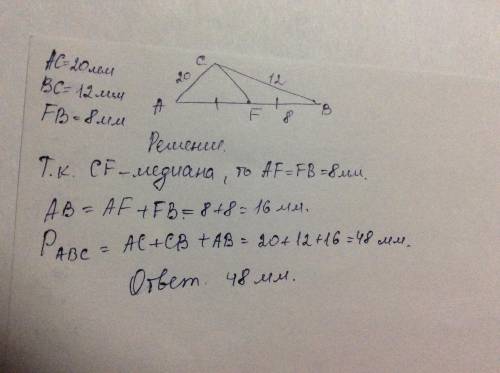 AC=20мм
BC=12мм
FB=8мм
C
20
12
A
F
8
B
Решение.
Т.к. CF-медиана, то AF=FB=8мм.
AB = AF+FB=8+8=16 мм.
P_ABC = AC+CB+AB=20+12+16=48 мм.
Ответ. 48 мм.